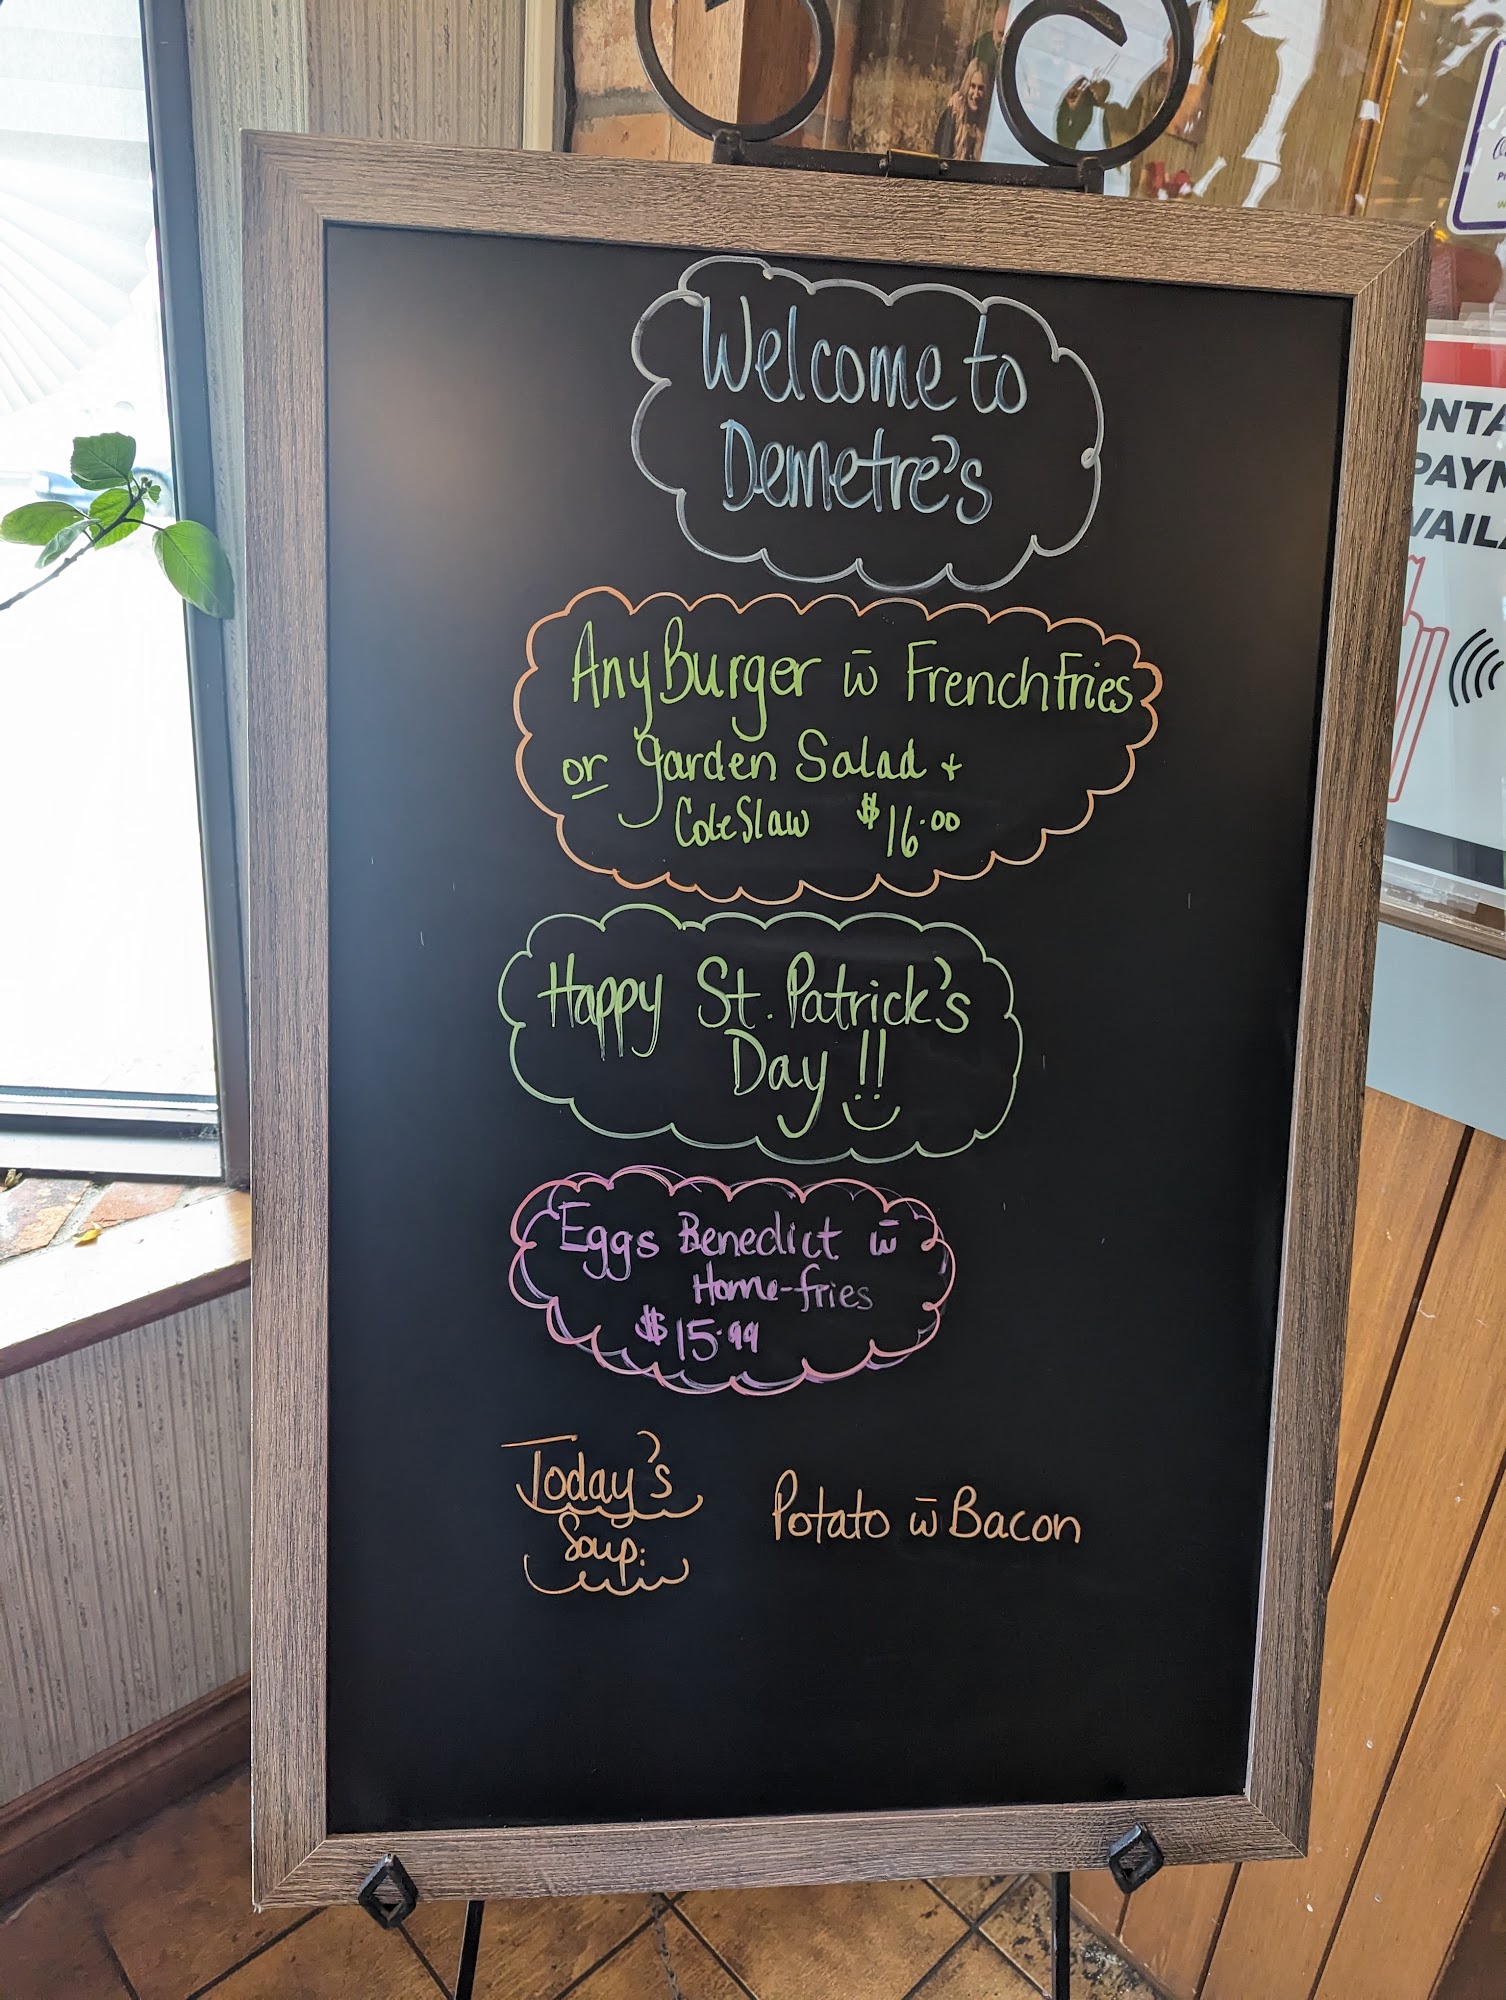 Welcome to
Demetre's
Any Burger w̄ French Fries
or garden Salad +
Cole Slaw $16.00
Happy St. Patrick's
Day !!
Eggs Benedict w̄
Home-fries
$15.99
Today's
Soup:
Potato w̄ Bacon